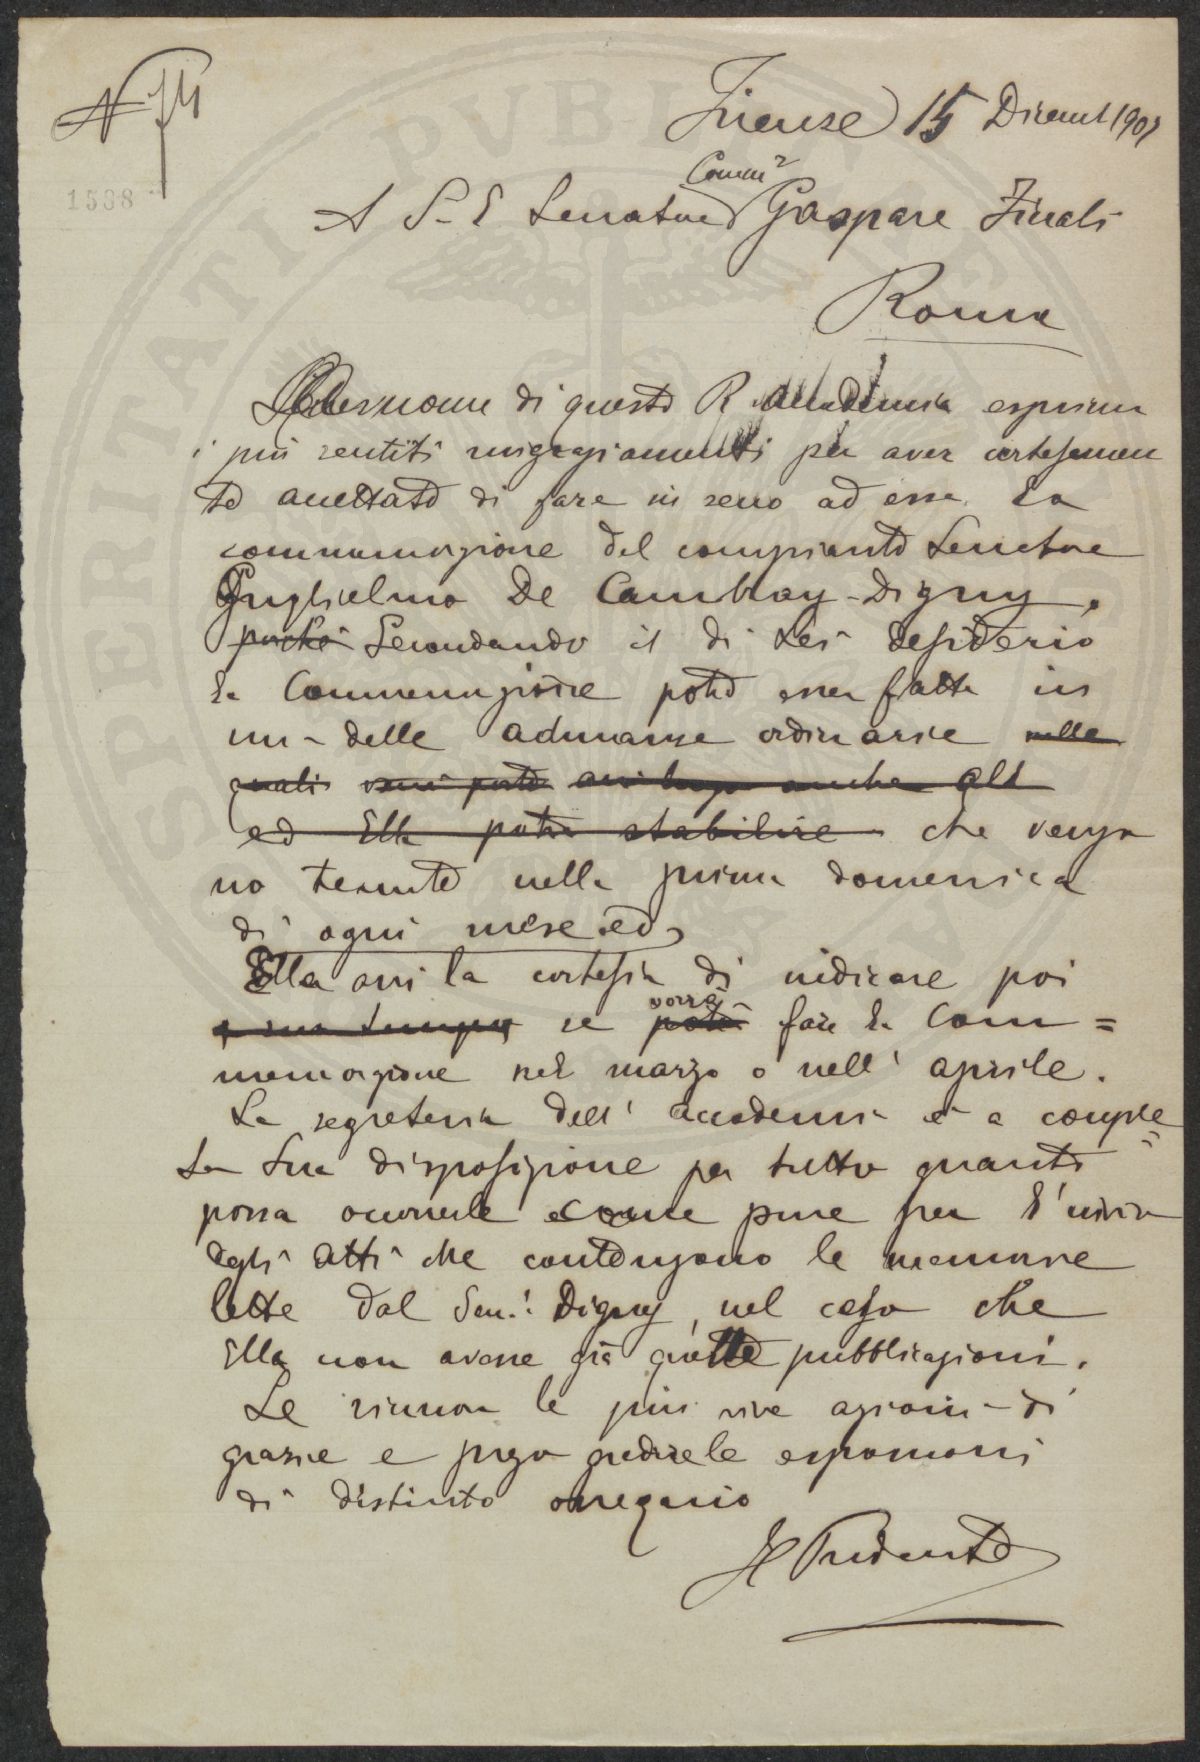 N 74
1538
Firenze 15 Dicemb 1907
Comm.
A S. E Senatore Gaspare Finali
Roma
A nome di questa R Accademia esprimo
i più sentiti ringraziamenti per aver cortesemen
te accettato di fare in seno ad essa la
commemorazione del compianto Senatore
Guglielmo De Cambray-Digny.
poichè Secondando il di Lei desiderio
la Commemorazione potrà esser fatta in
una delle adunanze ordinarie nelle
quali potrà anche
ed Ella potrà stabilire che vengo
no tenute nella prima domenica
di ogni mese ed
Ella avrà la cortesia di indicare poi
a suo tempo se potrà vorrà fare la Com=
memorazione nel marzo o nell' aprile.
La segreteria dell' Accademia è a comple=
ta Sua disposizione per tutto quanto
possa occorrerle come pure per l'invio
degli atti che contengono le memorie
lette dal Sen. Digny, nel caso che
Ella non avesse già queste pubblicazioni.
Le rinnovo le più vive azioni di
grazie e prego gradire le espressioni
di distinto ossequio
Il Presidente